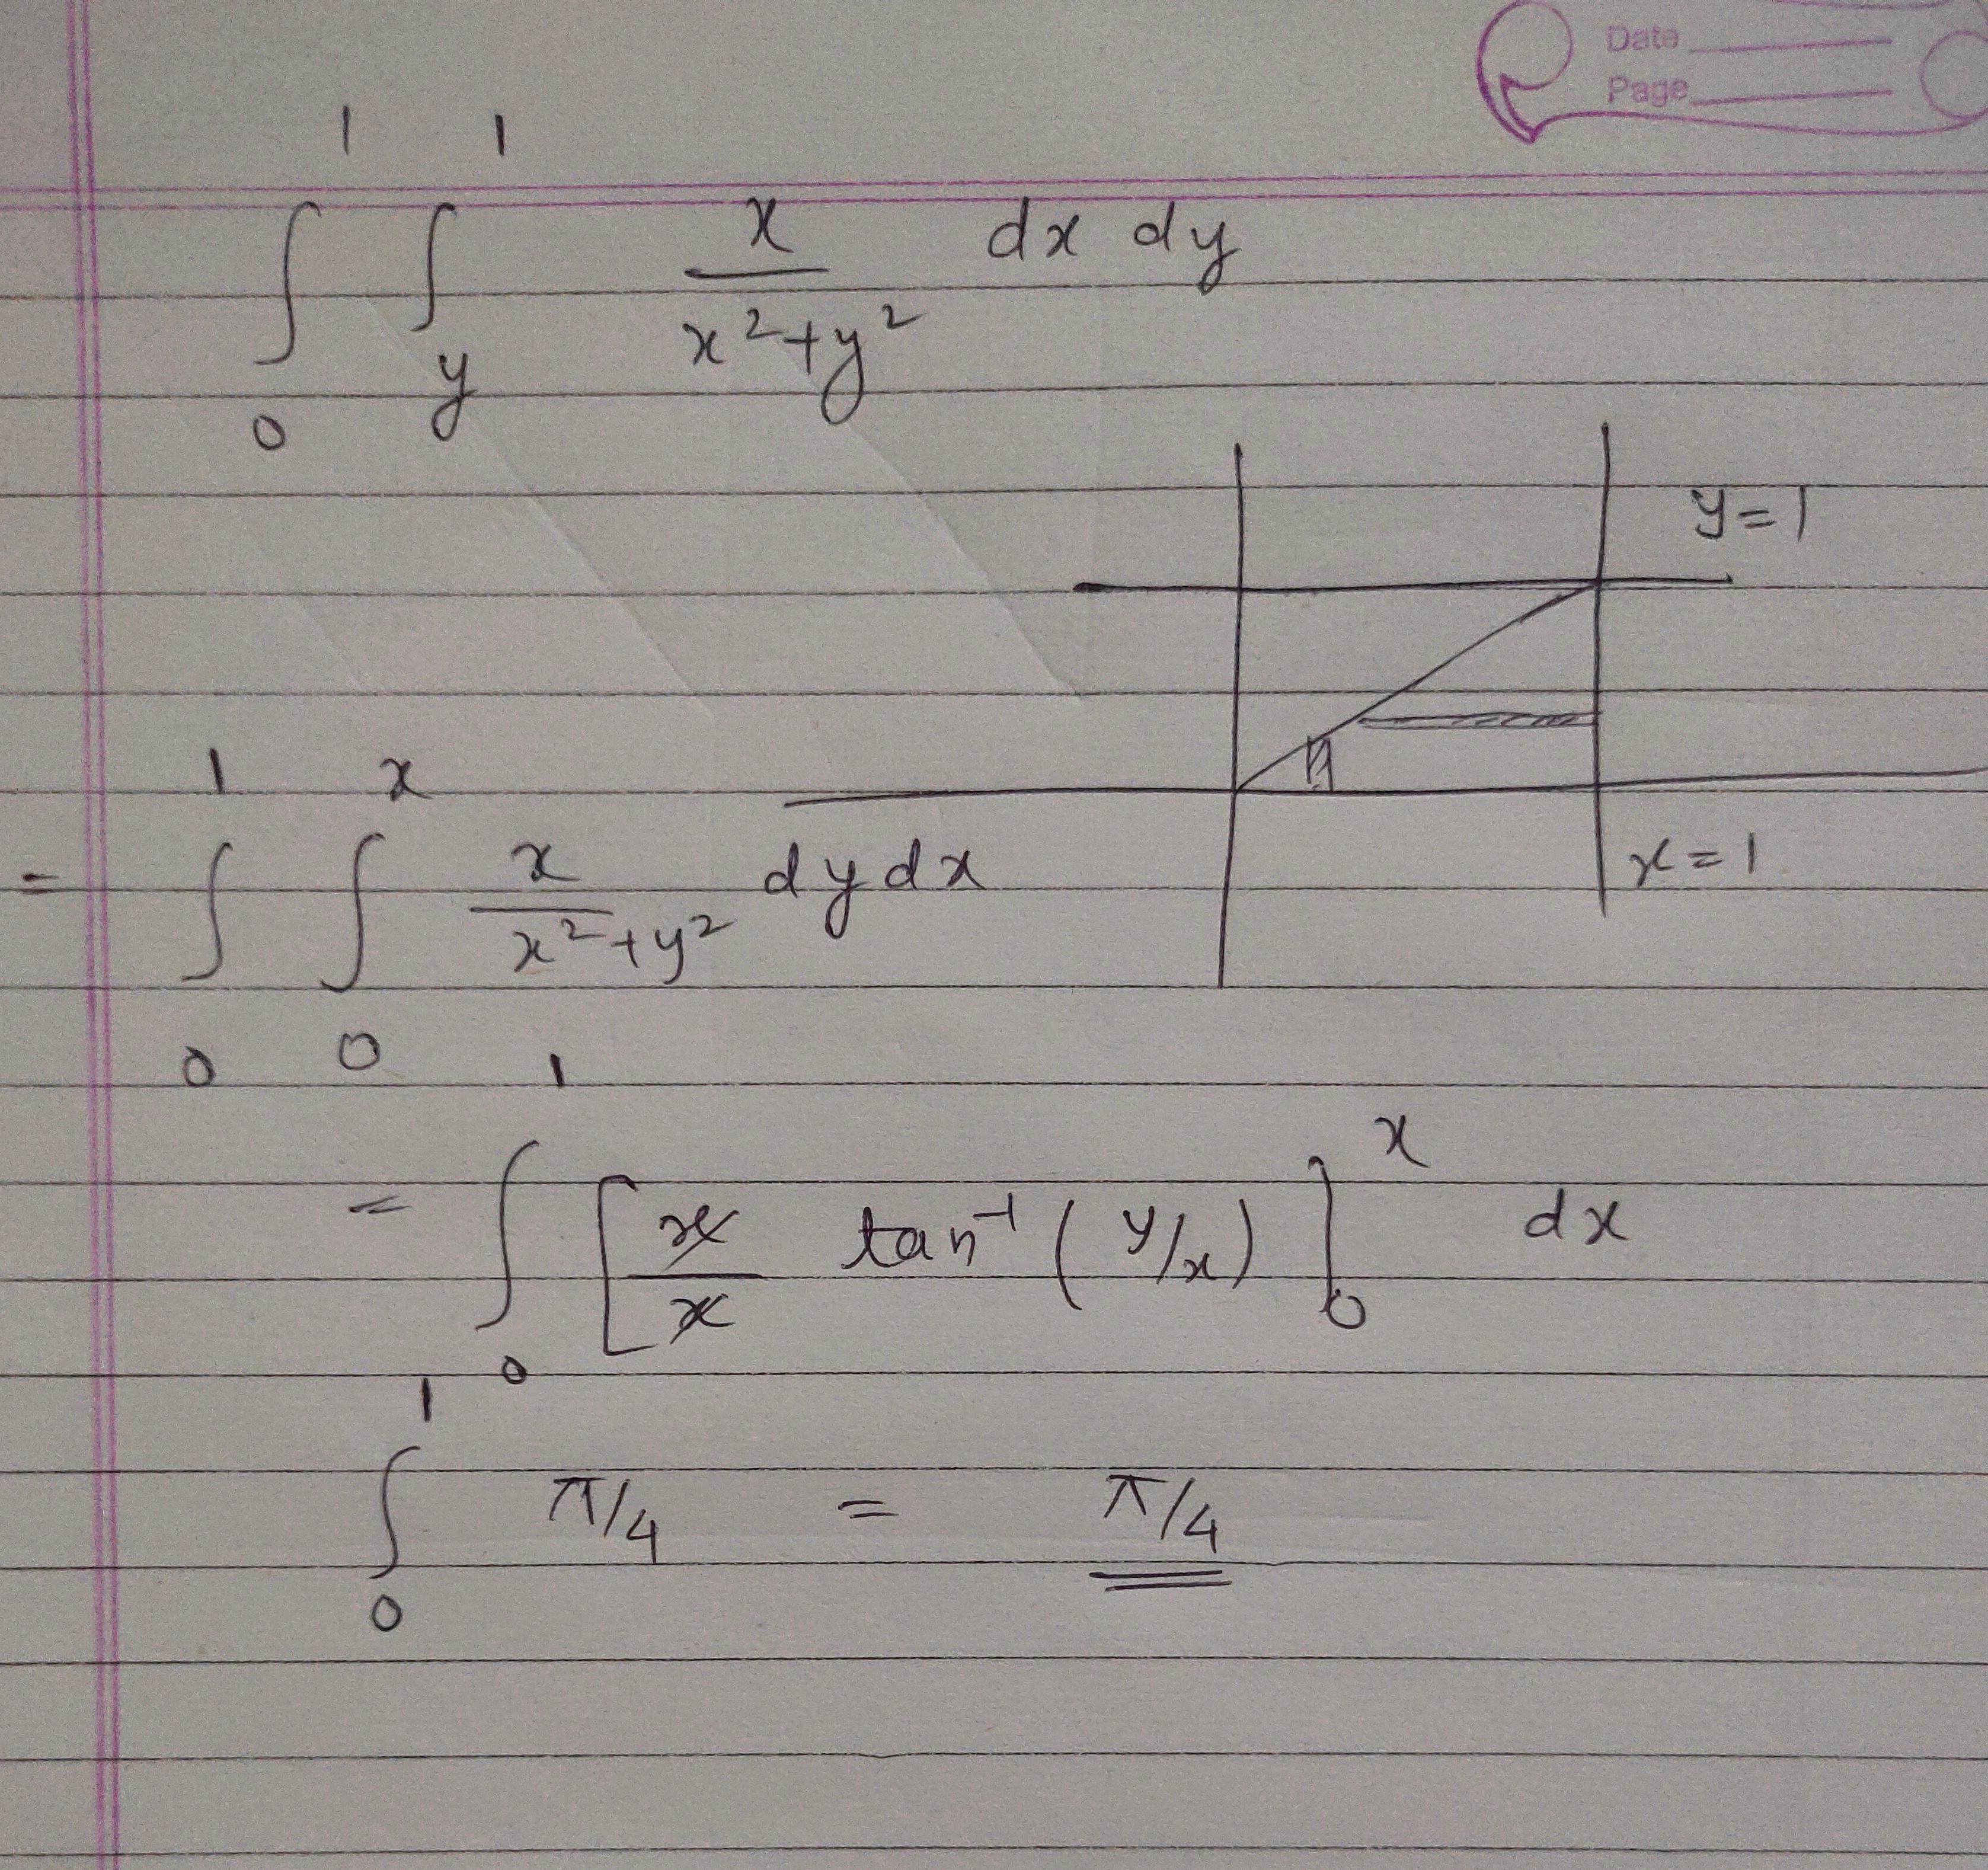 Date
Page
∫₀¹ ∫_y¹ x/(x²+y²) dx dy
y=1
x=1
= ∫₀¹ ∫₀ˣ x/(x²+y²) dy dx
= ∫₀¹ [x/x tan⁻¹(y/x)]₀ˣ dx
∫₀¹ π/4 = π/4